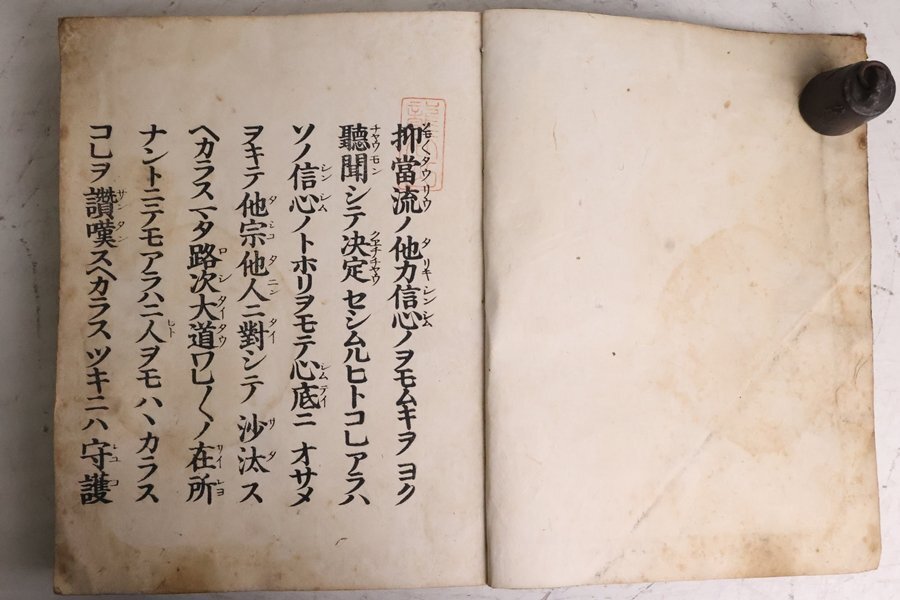 抑當流ノ他力信心ノヲモムキヲヨク
聽聞シテ决定セシムルヒトコレアラハ
ソノ信心ノトホリヲモテ心底ニオサメ
ヲキテ他宗他人ニ對シテ沙汰ス
ヘカラスマタ路次大道ワレ〱ノ在所
ナントニテモアラハニ人ヲモハヽカラス
コレヲ讚嘆スヘカラスツキニハ守護